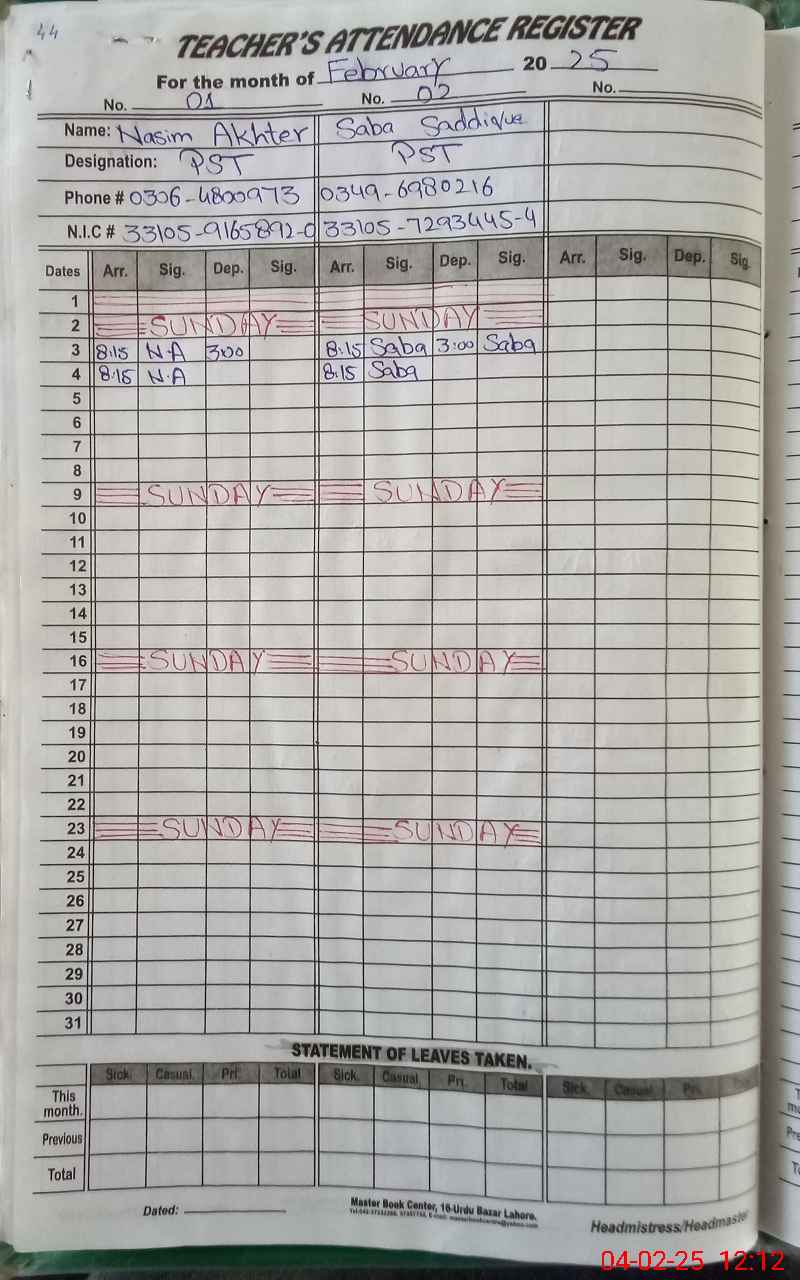 44
TEACHER'S ATTENDANCE REGISTER
For the month of February 2025
No. 01 No. 02 No.
Name: Nasim Akhter Saba Saddique
Designation: PST PST
Phone # 0306-4800973 0349-6980216
N.I.C # 33105-9165892-0 33105-7293445-4
Dates Arr. Sig. Dep. Sig. Arr. Sig. Dep. Sig. Arr. Sig. Dep. Sig.
1
2 SUNDAY SUNDAY
3 8:15 N.A 3:00 8:15 Saba 3:00 Saba
4 8:15 N.A 8:15 Saba
5
6
7
8
9 SUNDAY SUNDAY
10
11
12
13
14
15
16 SUNDAY SUNDAY
17
18
19
20
21
22
23 SUNDAY SUNDAY
24
25
26
27
28
29
30
31
STATEMENT OF LEAVES TAKEN.
Sick. Casual. Pri. Total Sick. Casual Pri. Total Sick. Casual Pri.
This month.
Previous
Total
Dated:
Master Book Center, 16-Urdu Bazar Lahore.
Headmistress/Headmaster
04-02-25 12:12